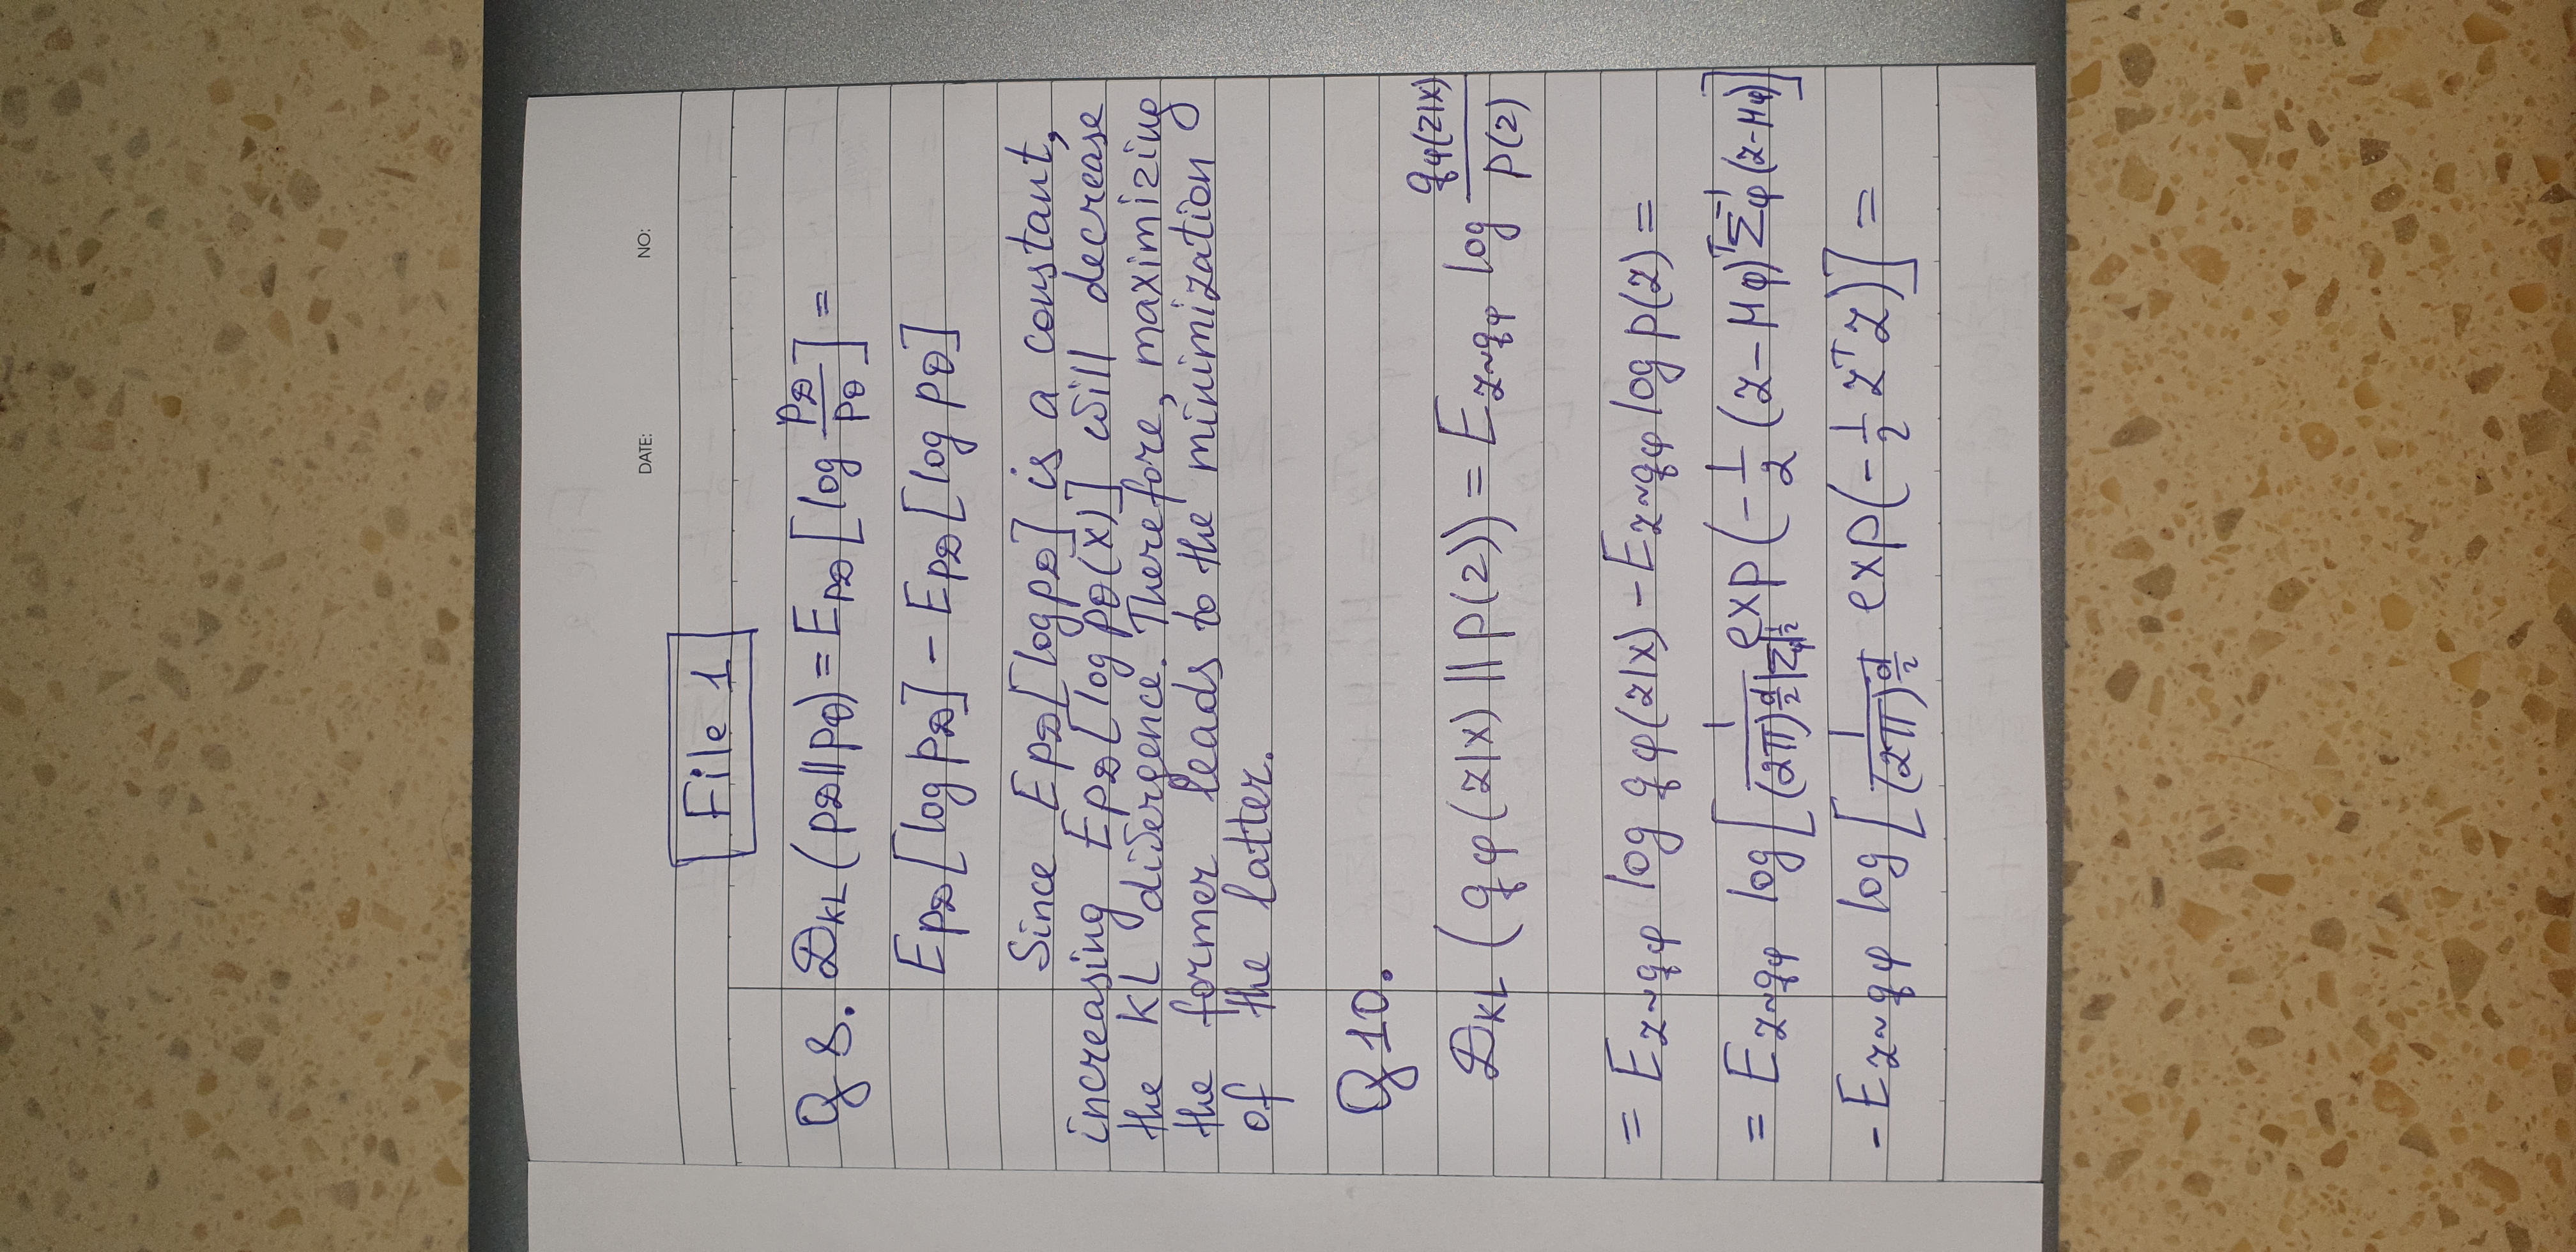 DATE: NO:
File 1
Q 8. D_KL (p_D || p_θ) = E_{p_D} [log p_D / p_θ] =
E_{p_D} [log p_D] - E_{p_D} [log p_θ]
Since E_{p_D} [log p_D] is a constant,
increasing E_{p_D} [log p_θ(x)] will decrease
the KL divergence. Therefore, maximizing
the former leads to the minimization
of the latter.
Q 10.
D_KL (q_φ(z|x) || p(z)) = E_{z~q_φ} log q_φ(z|x) / p(z)
= E_{z~q_φ} log q_φ(z|x) - E_{z~q_φ} log p(z) =
= E_{z~q_φ} log [1 / ((2π)^{d/2} |Σ_φ|^{1/2}) exp(-1/2 (z-μ_φ)^T Σ_φ^{-1} (z-μ_φ)]
- E_{z~q_φ} log [1 / (2π)^{d/2} exp(-1/2 z^T z)] =